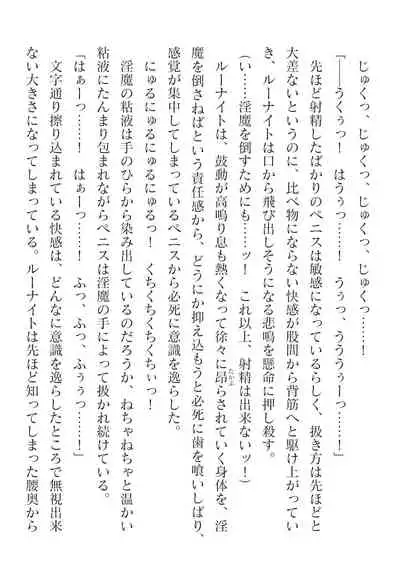 じゅくっ、じゅくっ、じゅくっ……！
「――うくぅっ！　はうぅっ……！　うぅっ、うううぅーっ……！」
　先ほど射精したばかりのペニスは敏感になっているらしく、扱き方は先ほどと
大差ないというのに、比べ物にならない快感が股間から背筋へと駆け上がってい
き、ルーナイトは口から飛び出しそうになる悲鳴を懸命に押し殺す。
（い……淫魔を倒すためにも……ッ！　これ以上、射精は出来ないッ！）
　ルーナイトは、鼓動が高鳴り息も熱くなって徐々に昂らされていく身体を、淫
魔を倒さねばという責任感から、どうにか抑え込もうと必死に歯を喰いしばり、
感覚が集中してしまっているペニスから必死に意識を逸らした。
　にゅるにゅるにゅるにゅるっ！　くちくちくちくちぃっ！
　淫魔の粘液は手のひらから染み出しているのだろうか、ねちゃねちゃと温かい
粘液にたんまり包まれながらペニスは淫魔の手によって扱かれ続けている。
「はぁーっ……！　はぁーっ……！　ふっ、ふっ、ふぅぅっ……！」
　文字通り擦り込まれている快感は、どんなに意識を逸らしたところで無視出来
ない大きさになってしまっている。ルーナイトは先ほど知ってしまった腰奥から